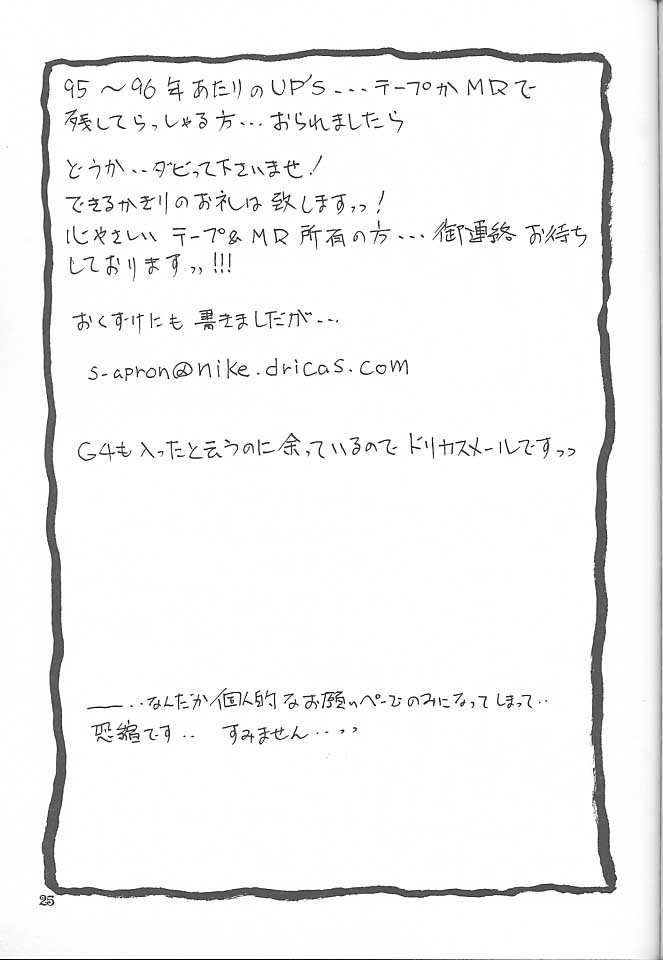 95～96年あたりのUP'S...テープかMDで
残してらっしゃる方...おられましたら
どうか..ダビって下さいませ!
できるかぎりのお礼は致しますっっ!
心やさしい テープ&MD所有の方...御連絡お待ち
しておりますっっ!!!
おくづけにも書きましたが...
s-apron@nike.dricas.com
G4も入ったと云うのに余っているので ドリカスメールですっっ
――..なんだか個人的なお願いページのみになってしまって..
恐縮です.. すみません..っっ
25